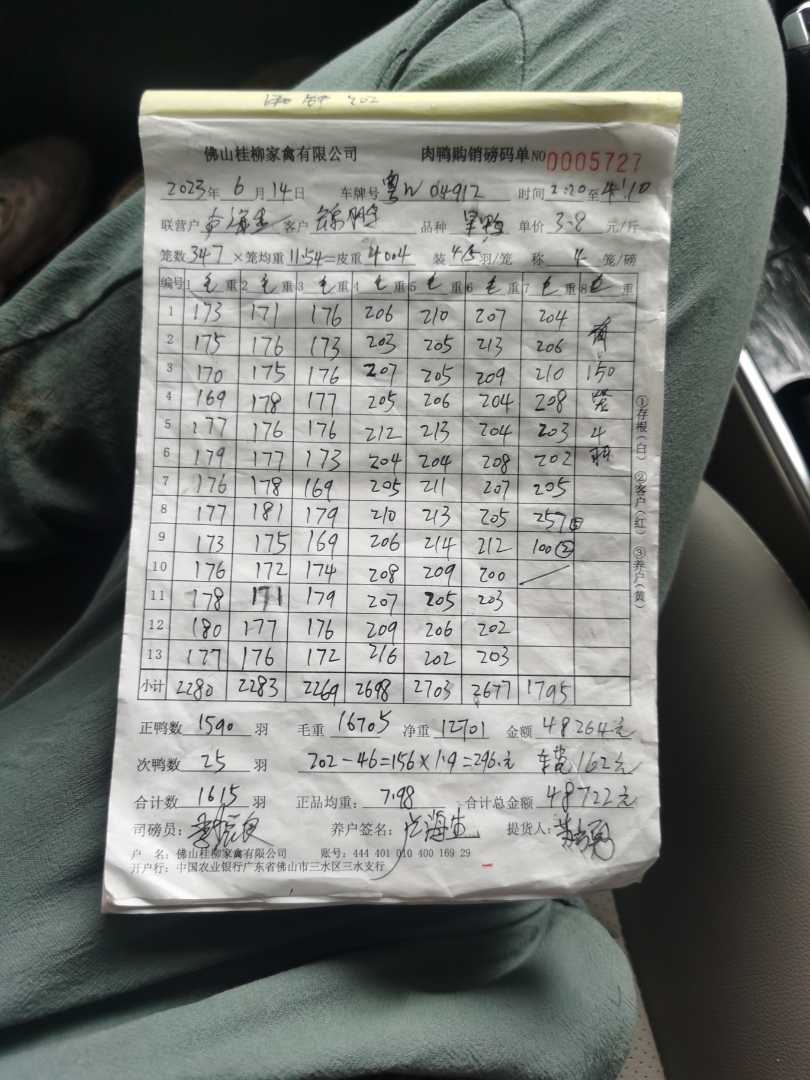 佛山桂柳家禽有限公司 肉鸭购销磅码单 NO 0005727
2023年 6月14日 车牌号 粤W 04912 时间 2:20 至 4:10
联营户 客户 品种 单价 3.8 元/斤
笼数 347 ×笼均重 11.54 =皮重 4004 装 4/5 羽/笼 称 4 笼/磅
编号 1 毛 重 2 毛 重 3 毛 重 4 毛 重 5 毛 重 6 毛 重 7 毛 重 8 毛 重
1 173 171 176 206 210 207 204 前
2 175 176 173 203 205 213 206
3 170 175 176 207 205 209 210 150
4 169 178 177 205 206 204 208 笼
5 177 176 176 212 213 204 203 4
6 179 177 173 204 204 208 202 羽
7 176 178 169 205 211 207 205
8 177 181 179 210 213 205 257
9 173 175 169 206 214 212 100②
10 176 172 174 208 209 200
11 178 171 179 207 205 203
12 180 177 176 209 206 202
13 177 176 172 216 202 203
小计 2280 2283 2269 2698 2703 2677 1795
正鸭数 1590 羽 毛重 16705 净重 12701 金额 48264元
次鸭数 25 羽 202-46=156×1.9=296.元 162元
合计数 1615 羽 正品均重: 7.98 合计总金额 48722元
司磅员: 养户签名: 提货人:
户 名: 佛山桂柳家禽有限公司 账号: 444 401 010 400 169 29
开户行: 中国农业银行广东省佛山市三水区三水支行
①存根(白) ②客户(红) ③养户(黄)